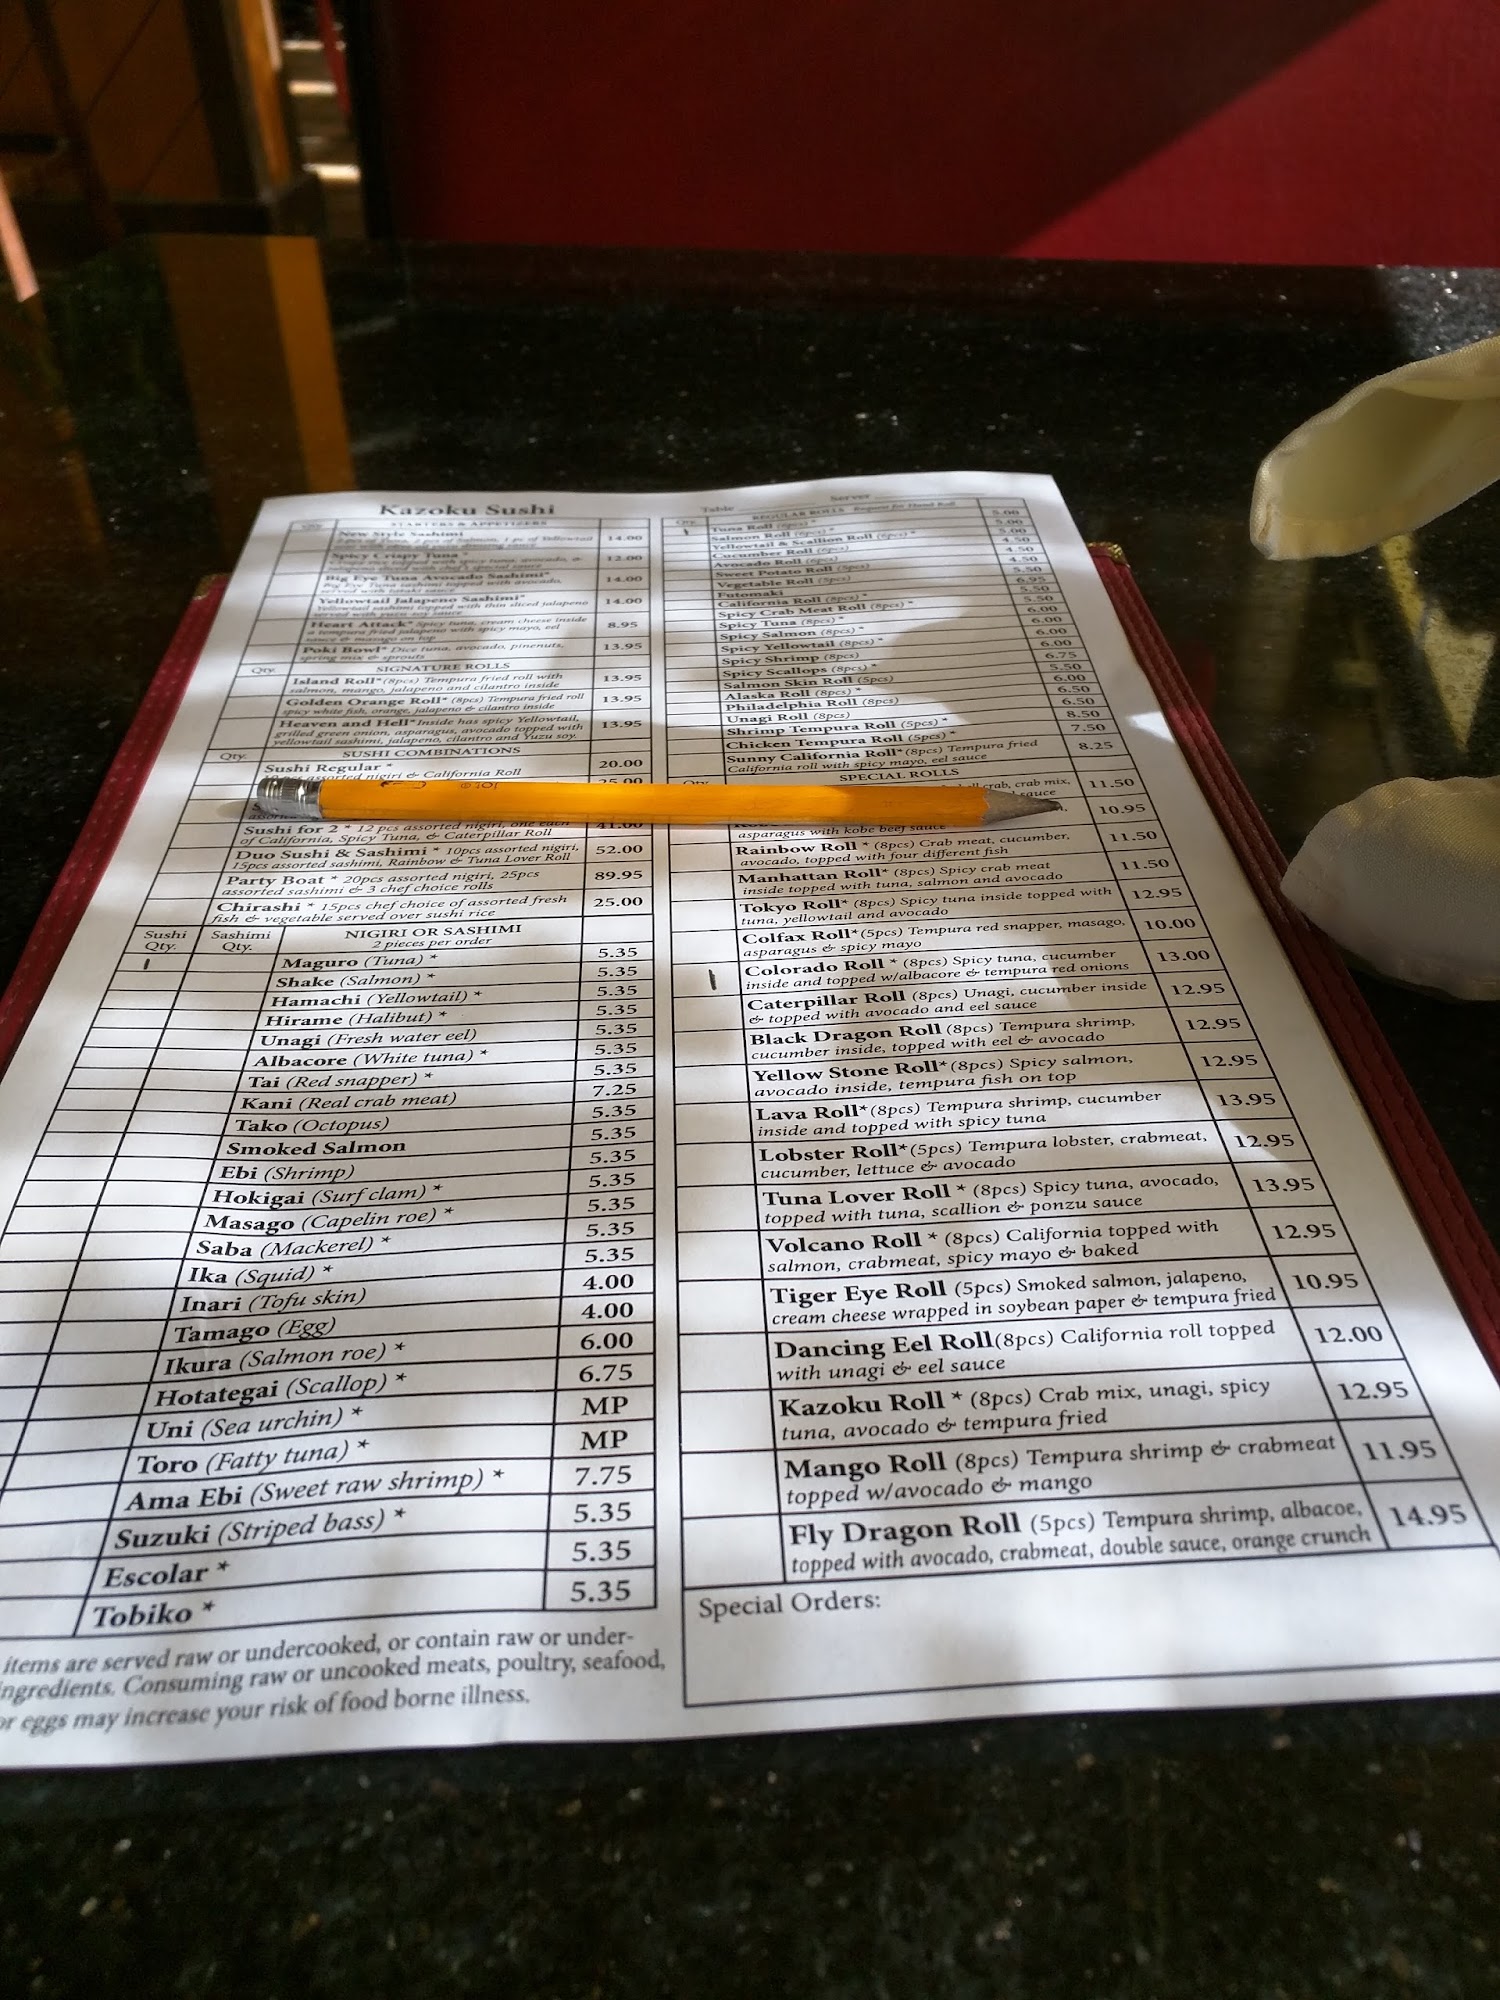 Kazoku Sushi
STARTERS & APPETIZERS
Qty.
New Style Sashimi
of Salmon, 1 pc of Yellowtail
14.00
Spicy Crispy Tuna *
12.00
Big Eye Tuna Avocado Sashimi*
Big Eye Tuna sashimi topped with avocado,
14.00
Yellowtail Jalapeno Sashimi*
Yellowtail sashimi topped with thin sliced jalapeno
served with yuzu soy sauce
14.00
Heart Attack* Spicy tuna, cream cheese inside
a tempura fried jalapeno with spicy mayo, eel
sauce & masago on top
8.95
Poki Bowl* Dice tuna, avocado, pinenuts,
spring mix & sprouts
13.95
Qty. SIGNATURE ROLLS
Island Roll* (8pcs) Tempura fried roll with
salmon, mango, jalapeno and cilantro inside
13.95
Golden Orange Roll* (8pcs) Tempura fried roll
spicy white fish, orange, jalapeno & cilantro inside
13.95
Heaven and Hell* Inside has spicy Yellowtail,
grilled green onion, asparagus, avocado topped with
yellowtail sashimi, jalapeno, cilantro and Yuzu soy.
13.95
Qty. SUSHI COMBINATIONS
Sushi Regular *
assorted nigiri & California Roll
20.00
25.00
Sushi for 2 * 12 pcs assorted nigiri, one each
of California, Spicy Tuna, & Caterpillar Roll
41.00
Duo Sushi & Sashimi * 10pcs assorted nigiri,
15pcs assorted sashimi, Rainbow & Tuna Lover Roll
52.00
Party Boat * 20pcs assorted nigiri, 25pcs
assorted sashimi & 3 chef choice rolls
89.95
Chirashi * 15pcs chef choice of assorted fresh
fish & vegetable served over sushi rice
25.00
Sushi Qty. Sashimi Qty. NIGIRI OR SASHIMI
2 pieces per order
1 Maguro (Tuna) * 5.35
Shake (Salmon) * 5.35
Hamachi (Yellowtail) * 5.35
Hirame (Halibut) * 5.35
Unagi (Fresh water eel) 5.35
Albacore (White tuna) * 5.35
Tai (Red snapper) * 5.35
Kani (Real crab meat) 7.25
Tako (Octopus) 5.35
Smoked Salmon 5.35
Ebi (Shrimp) 5.35
Hokigai (Surf clam) * 5.35
Masago (Capelin roe) * 5.35
Saba (Mackerel) * 5.35
Ika (Squid) * 5.35
Inari (Tofu skin) 4.00
Tamago (Egg) 4.00
Ikura (Salmon roe) * 6.00
Hotategai (Scallop) * 6.75
Uni (Sea urchin) * MP
Toro (Fatty tuna) * MP
Ama Ebi (Sweet raw shrimp) * 7.75
Suzuki (Striped bass) * 5.35
Escolar * 5.35
Tobiko * 5.35
items are served raw or undercooked, or contain raw or under-
ingredients. Consuming raw or uncooked meats, poultry, seafood,
or eggs may increase your risk of food borne illness.
Table Server
Qty. REGULAR ROLLS Request for Hand Roll
Tuna Roll (6pcs) * 5.00
Salmon Roll (6pcs) * 5.00
Yellowtail & Scallion Roll (6pcs) * 5.00
Cucumber Roll (6pcs) 4.50
Avocado Roll (6pcs) 4.50
Sweet Potato Roll (5pcs) 4.50
Vegetable Roll (5pcs) 5.50
Futomaki 6.95
California Roll (8pcs) * 5.50
Spicy Crab Meat Roll (8pcs) * 5.50
Spicy Tuna (8pcs) * 6.00
Spicy Salmon (8pcs) * 6.00
Spicy Yellowtail (8pcs) * 6.00
Spicy Shrimp (8pcs) 6.00
Spicy Scallops (8pcs) * 6.75
Salmon Skin Roll (5pcs) 5.50
Alaska Roll (8pcs) * 6.00
Philadelphia Roll (8pcs) 6.50
Unagi Roll (8pcs) 6.50
Shrimp Tempura Roll (5pcs) * 8.50
Chicken Tempura Roll (5pcs) * 7.50
Sunny California Roll* (8pcs) Tempura fried
California roll with spicy mayo, eel sauce
8.25
Qty. SPECIAL ROLLS
crab, crab mix,
sauce
11.50
asparagus with kobe beef sauce
10.95
Rainbow Roll * (8pcs) Crab meat, cucumber,
avocado, topped with four different fish
11.50
Manhattan Roll* (8pcs) Spicy crab meat
inside topped with tuna, salmon and avocado
11.50
Tokyo Roll* (8pcs) Spicy tuna inside topped with
tuna, yellowtail and avocado
12.95
Colfax Roll* (5pcs) Tempura red snapper, masago,
asparagus & spicy mayo
10.00
1 Colorado Roll * (8pcs) Spicy tuna, cucumber
inside and topped w/albacore & tempura red onions
13.00
Caterpillar Roll (8pcs) Unagi, cucumber inside
& topped with avocado and eel sauce
12.95
Black Dragon Roll (8pcs) Tempura shrimp,
cucumber inside, topped with eel & avocado
12.95
Yellow Stone Roll* (8pcs) Spicy salmon,
avocado inside, tempura fish on top
12.95
Lava Roll* (8pcs) Tempura shrimp, cucumber
inside and topped with spicy tuna
13.95
Lobster Roll* (5pcs) Tempura lobster, crabmeat,
cucumber, lettuce & avocado
12.95
Tuna Lover Roll * (8pcs) Spicy tuna, avocado,
topped with tuna, scallion & ponzu sauce
13.95
Volcano Roll * (8pcs) California topped with
salmon, crabmeat, spicy mayo & baked
12.95
Tiger Eye Roll (5pcs) Smoked salmon, jalapeno,
cream cheese wrapped in soybean paper & tempura fried
10.95
Dancing Eel Roll (8pcs) California roll topped
with unagi & eel sauce
12.00
Kazoku Roll * (8pcs) Crab mix, unagi, spicy
tuna, avocado & tempura fried
12.95
Mango Roll (8pcs) Tempura shrimp & crabmeat
topped w/avocado & mango
11.95
Fly Dragon Roll (5pcs) Tempura shrimp, albacoe,
topped with avocado, crabmeat, double sauce, orange crunch
14.95
Special Orders: